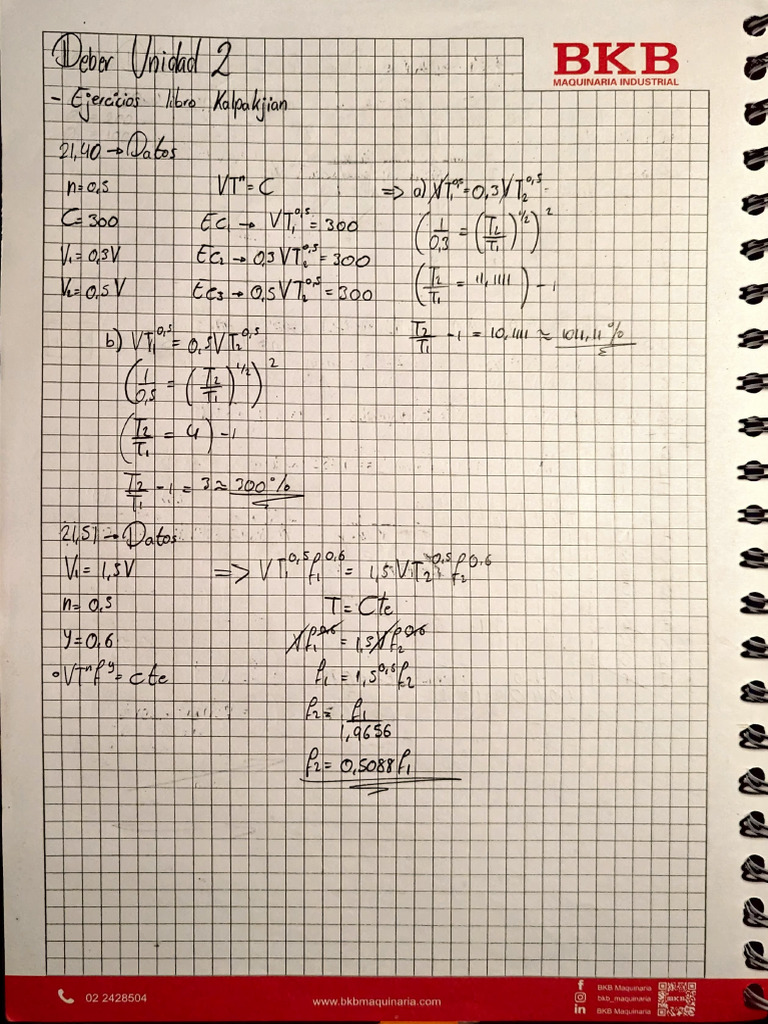 Deber Unidad 2
BKB
MAQUINARIA INDUSTRIAL
- Ejercicios libro Kalpakjian
21,40 → Datos
n = 0,5
C = 300
V₁ = 0,3V
V₂ = 0,5V
VTⁿ = C
Ec₁ → VT₁^0,5 = 300
Ec₂ → 0,3VT₂^0,5 = 300
Ec₃ → 0,5VT₂^0,5 = 300
=> a) VT₁^0,5 = 0,3VT₂^0,5
(1/0,3 = (T₂/T₁)^1/2)^2
(T₂/T₁ = 11,1111) - 1
T₂/T₁ - 1 = 10,111 ≈ 1011,11%
b) VT₁^0,5 = 0,5VT₂^0,5
(1/0,5 = (T₂/T₁)^1/2)^2
(T₂/T₁ = 4) - 1
T₂/T₁ - 1 = 3 ≈ 300%
21,51 → Datos
V₁ = 1,5V
n = 0,5
y = 0,6
• VTⁿf^y = cte
=> VT₁^0,5 f₁^0,6 = 1,5VT₂^0,5 f₂^0,6
T = Cte
Vf₁^0,6 = 1,5Vf₂^0,6
f₁ = 1,5^0,6 f₂
f₂ = f₁/1,9656
f₂ = 0,5088f₁
02 2428504
www.bkbmaquinaria.com
BKB Maquinaria
bkb_maquinaria
BKB Maquinaria
BKB